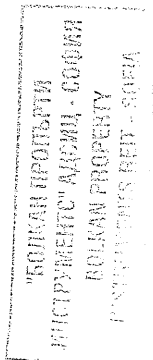 "БОЛКАН ПРОПЪРТИ
ИНСТРУМЕНТС" АДСИЦ - СОФИЯ
BOLKAN PROPERTY
INSTRUMENTS REIT - SOFIA